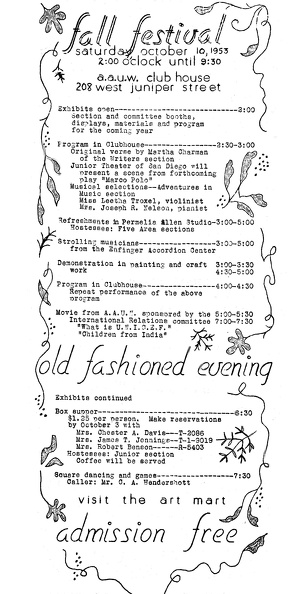 fall festival
saturday october 10, 1953
2:00 oclock until 9:30
a.a.u.w. club house
208 west juniper street
Exhibits open-----------------------------2:00
Section and committee booths,
displays, materials and program
for the coming year
Program in Clubhouse------------------2:30-3:00
Original verse by Martha Charman
of the Writers section
Junior Theater of San Diego will
present a scene from forthcoming
play "Marco Polo"
Musical selections--Adventures in
Music section
Miss Leetha Troxel, violinist
Mrs. Joseph R. Yelson, pianist
Refreshments in Permelia Allen Studio-3:00-5:00
Hostesses: Five Area sections
Strolling musicians-------------------3:00-5:00
from the Enfinger Accordion Center
Demonstration in painting and craft 3:00-3:30
work 4:30-5:00
Program in Clubhouse------------------4:00-4:30
Repeat performance of the above
program
Movie from A.A.U.". sponsored by the 5:00-5:30
International Relations committee 7:00-7:30
"What is U.N.I.C.E.F."
"Children from India"
old fashioned evening
Exhibits continued
Box supper-------------------------------6:30
$1.25 per person. Make reservations
by October 3 with
Mrs. Chester A. Davis---T-2086
Mrs. James T. Jennings--T-1-3019
Mrs. Robert Benson-----R-5403
Hostesses: Junior section
Coffee will be served
Square dancing and games-----------------7:30
Caller: Mr. C. A. Hendershott
visit the art mart
admission free